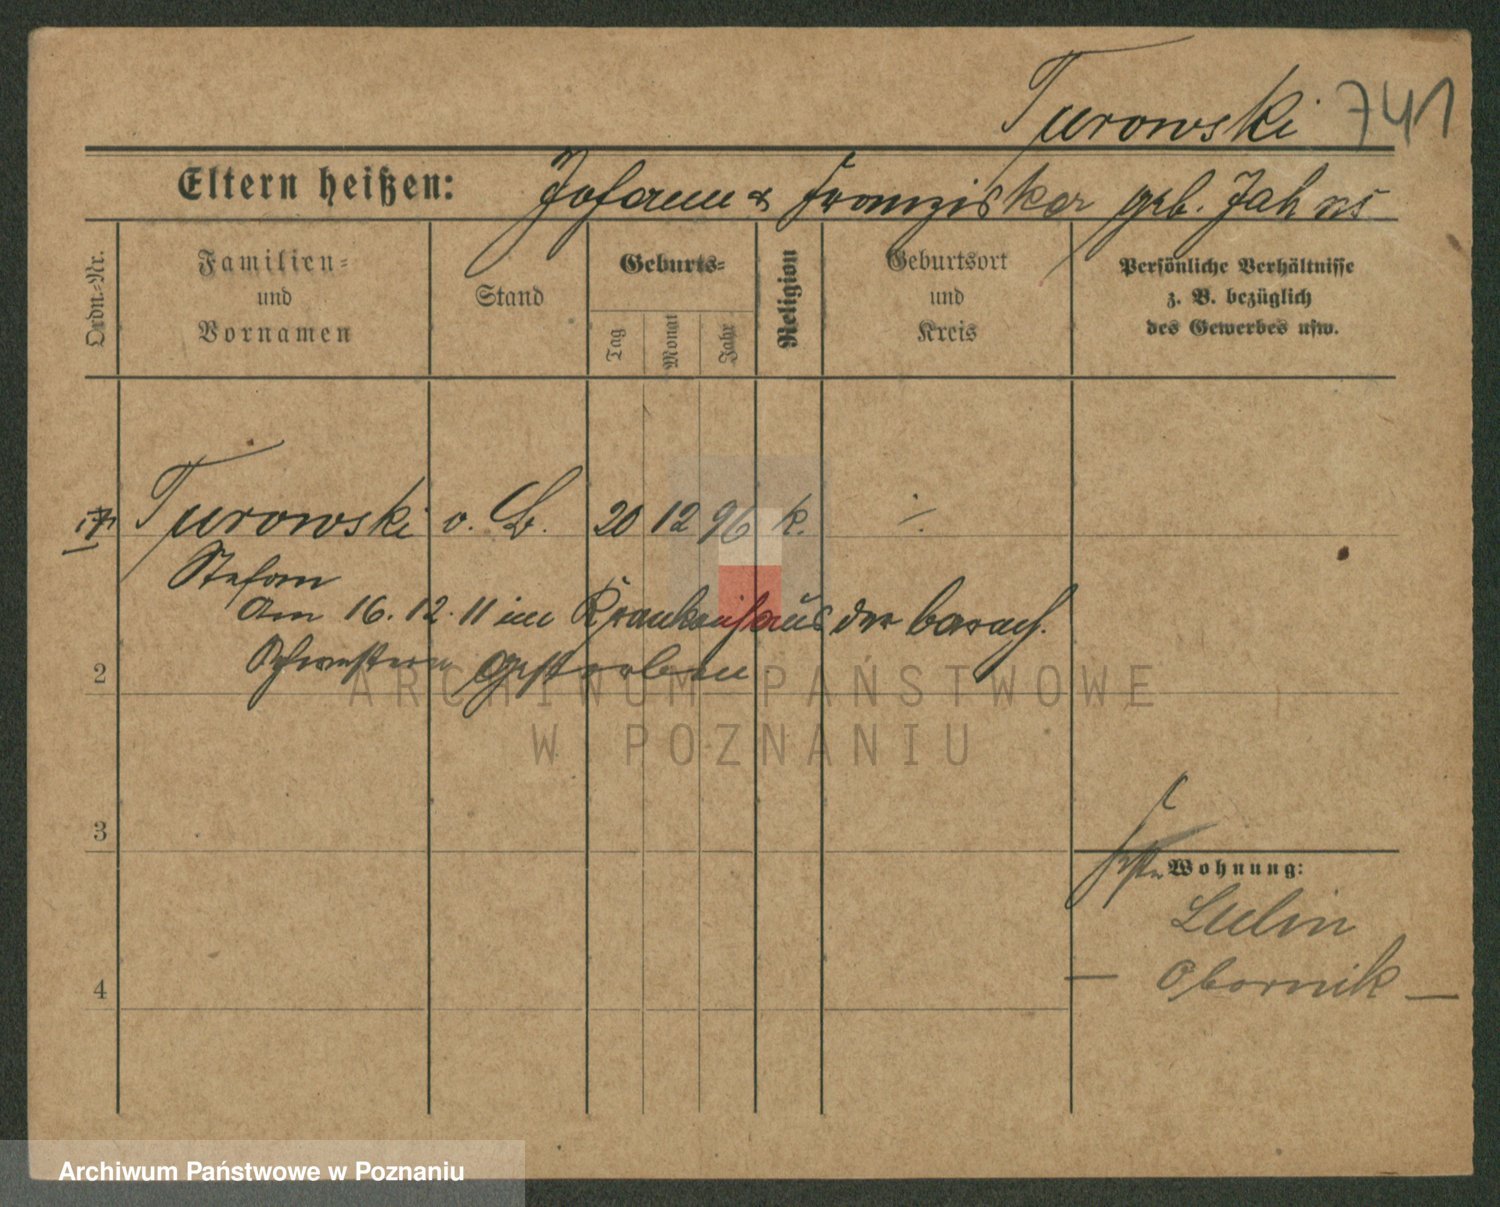 Turowski 741
Eltern heißen: Johann & Franziska geb. Jahns
Ordn.-Nr.
Familien-
und
Vornamen
Stand
Geburts-
Tag
Monat
Jahr
Religion
Geburtsort
und
Kreis
Persönliche Verhältnisse
z. B. bezüglich
des Gewerbes usw.
Turowski o. B. 20 12 96 k. ./.
Stefan
Am 16. 12. 11 im Krankenhaus der barmh.
Schwestern gestorben
2
3
4
Wohnung:
Lulin
— Obornik —
ARCHIWUM PAŃSTWOWE
W POZNANIU
Archiwum Państwowe w Poznaniu